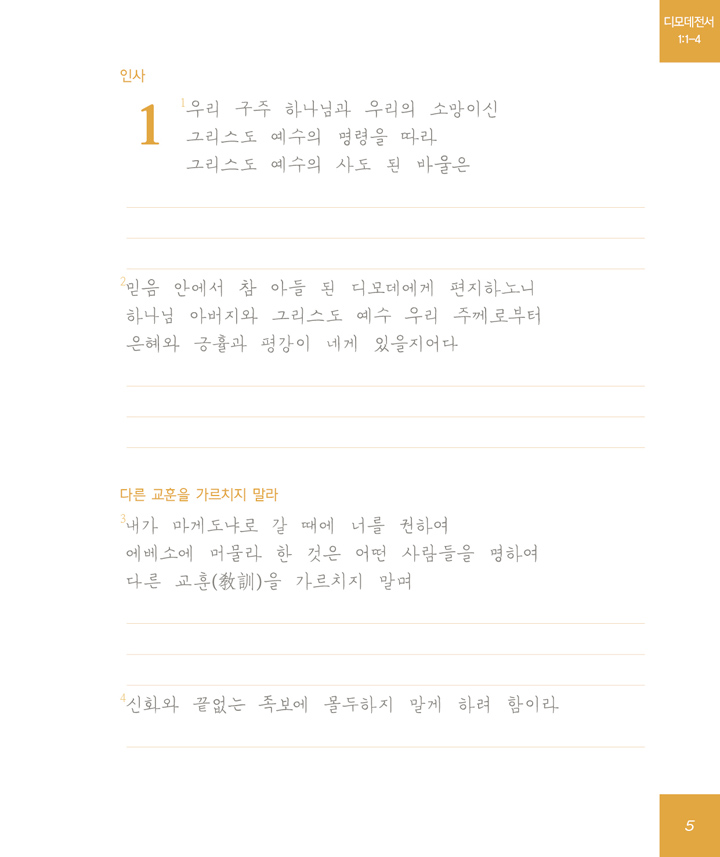 디모데전서
1:1-4
인사
1
1우리 구주 하나님과 우리의 소망이신
그리스도 예수의 명령을 따라
그리스도 예수의 사도 된 바울은
2믿음 안에서 참 아들 된 디모데에게 편지하노니
하나님 아버지와 그리스도 예수 우리 주께로부터
은혜와 긍휼과 평강이 네게 있을지어다
다른 교훈을 가르치지 말라
3내가 마게도냐로 갈 때에 너를 권하여
에베소에 머물라 한 것은 어떤 사람들을 명하여
다른 교훈(敎訓)을 가르치지 말며
4신화와 끝없는 족보에 몰두하지 말게 하려 함이라
5